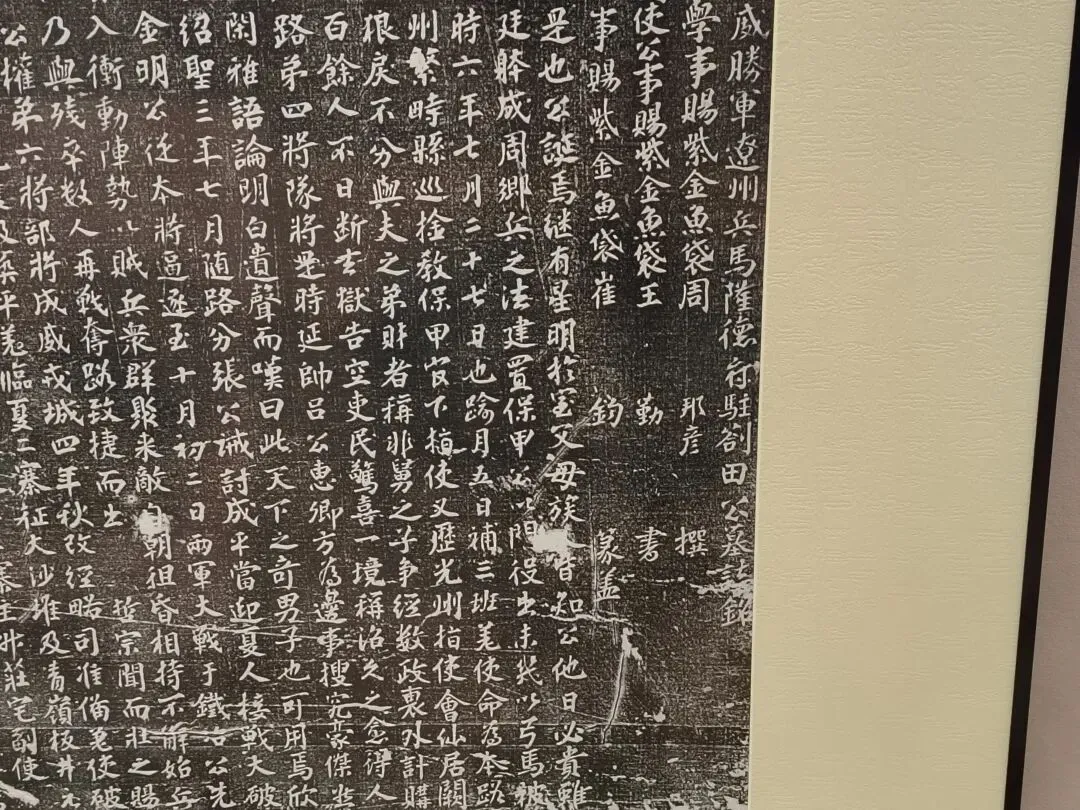 威勝軍遼州兵馬隆德府駐劄田公墓誌銘
學事賜紫金魚袋周 邦彥 撰
使公事賜紫金魚袋王 勤 書
事賜紫金魚袋崔 鈞 篆蓋
是也公誕焉継有星明於室父母族人皆知公他日必貴雖
廷降成周鄉兵之法建置保甲公以閱役出未幾以弓馬被
時六年七月二十七日也踰月五日補三班差使命為本路
州繁畤縣巡捡教保甲官下指使又歷光州指使會仙居闕
狼戾不分與夫之弟財者稱非舅之子争經数政裏外計購
百餘人不日断去獄告空吏民驚喜一境稱治久之僉得人
路第四將隊將是時延帥吕公惠卿方為邊事搜宪豪傑
閑雅語論明白遺聲而嘆曰此天下之竒男子也可用焉欣
紹聖三年七月随路分張公诫討成平當迎夏人接戰大破
金明公從本將逼逐至十月初二日兩軍大戰于鐵冶公先
入衝動陣勢以賊兵衆群聚来敵自朝徂昏相持不解始兵
乃與殘卒数人再戦奪路致捷而出 哲宗聞而壯之賜
公權弟六將部將成威戎城四年秋改經略司准俻差使破
平羌臨夏三寨征大沙堆及青嶺板井